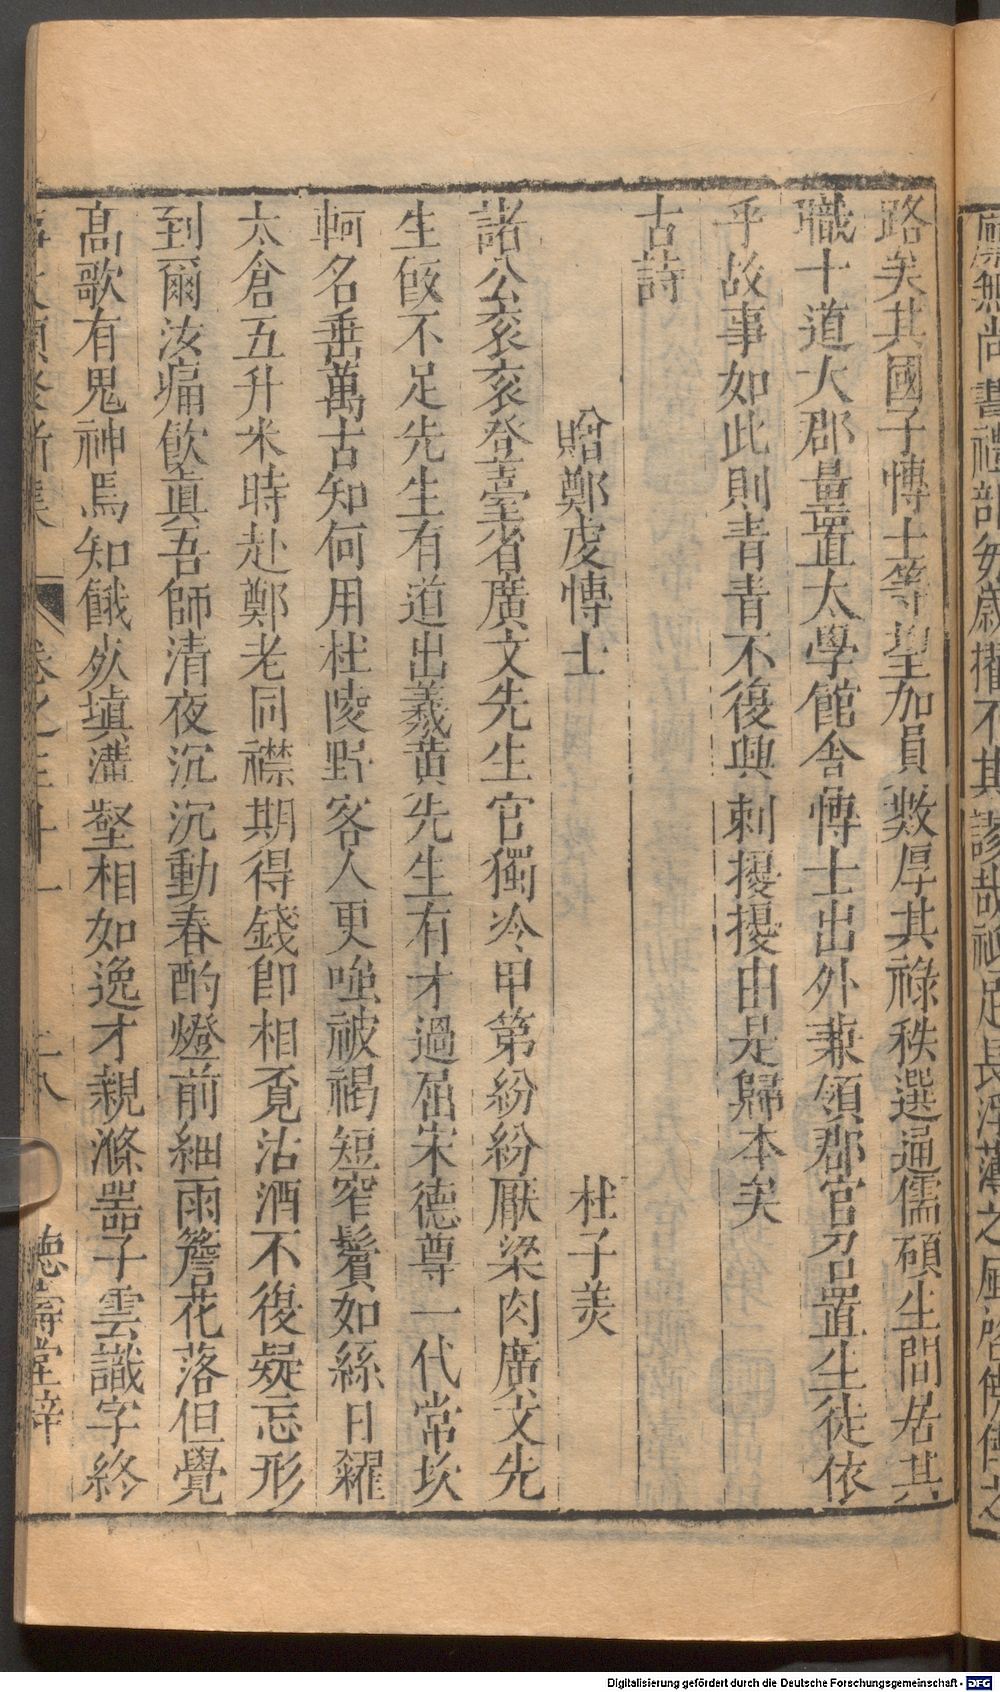 廕無尚書禮部每歲擢不其謬哉祗足長浮薄之風啓僥倖之
路矣其國子博士等望加員數厚其祿秩選通儒碩生間居其
職十道大郡量置太學館舍博士出外兼領郡官召置生徒依
乎故事如此則青青不復興刺擾擾由是歸本矣
古詩
贈鄭虔博士 杜子美
諸公衮衮登臺省廣文先生官獨冷甲第紛紛厭梁肉廣文先
生飯不足先生有道出羲黃先生有才過屈宋德尊一代常坎
軻名垂萬古知何用杜陵野客人更嗤被褐短窄鬢如絲日糴
太倉五升米時赴鄭老同襟期得錢卽相覔沽酒不復疑忘形
到爾汝痛飲眞吾師清夜沉沉動春酌燈前細雨簷花落但覺
高歌有鬼神焉知餓死塡溝壑相如逸才親滌器子雲識字終
事文類聚新集 卷之三十一 二八 德壽堂梓
Digitalisierung gefördert durch die Deutsche Forschungsgemeinschaft - DFG